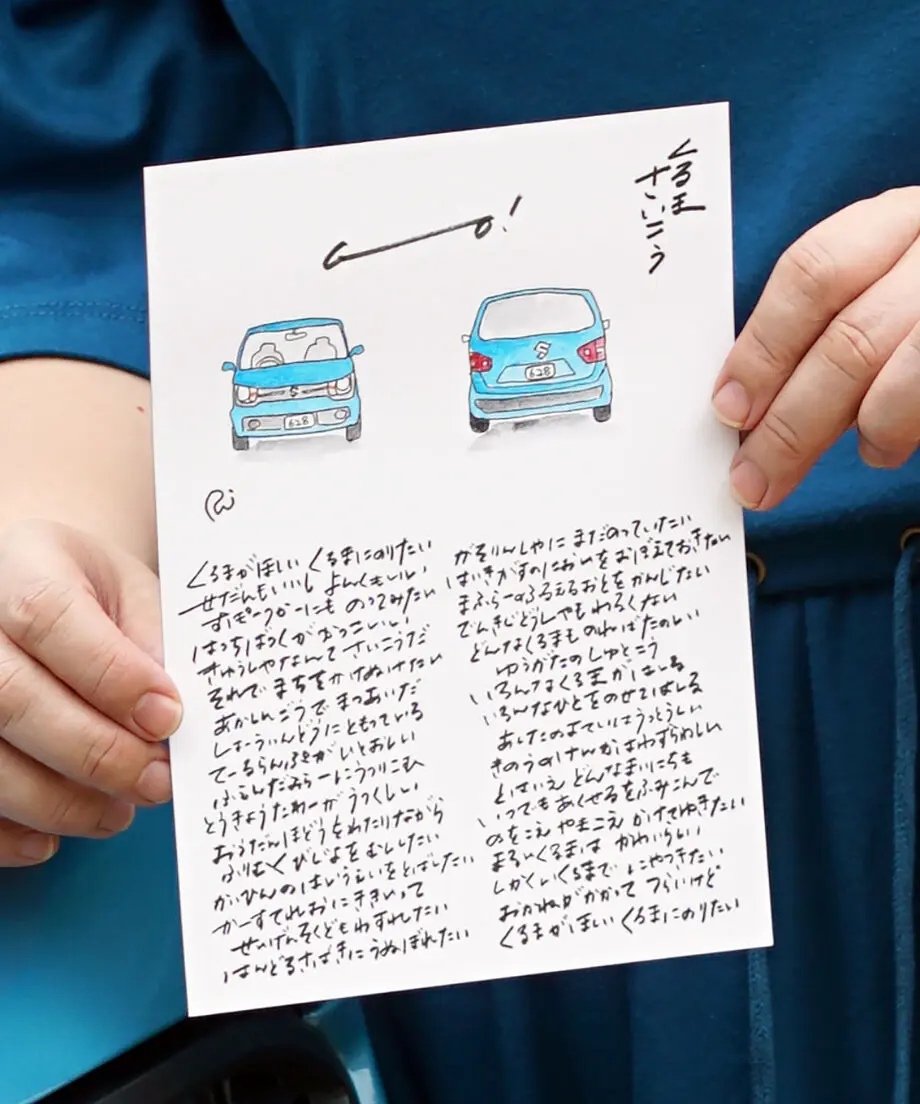 くるま
さいこう
Go!
628
628
くるまがほしい くるまにのりたい
せだんもいいし よんくもいい
すぽーつかーにも のってみたい
はっちばっくがかっこいい
きゅうしゃなんて さいこうだ
それで まちをかけぬけたい
あかしんごうで まつあいだ
しょーういんどうに ともっている
てーるらんぷが いとおしい
ふぇんだみらーに うつりこむ
とうきょうたわーが うつくしい
おうだんほどうをわたりながら
ふりむくびじょをむししたい
かいひんのはいうぇいをとばしたい
かーすてれおに ききいって
せいげんそくどもわすれたい
はんどるさばきに うぬぼれたい
がそりんしゃに まだのっていたい
はいきがすのにおいをおぼえておきたい
まふらーのふるえるおとをかんじたい
でんきじどうしゃもわるくない
どんなくるまものればたのしい
ゆうがたのしゅとこう
いろんなくるまがはしる
いろんなひとをのせてはしる
あしたのよていはうっとうしい
きのうのけんかはわずらわしい
とはいえ どんなまいにちも
いつでもあくせるをふみこんで
のをこえ やまこえ かけてゆきたい
まるいくるまは かわいらしい
しかくいくるまで にやつきたい
おかねがかかって つらいけど
くるまがほしい くるまにのりたい